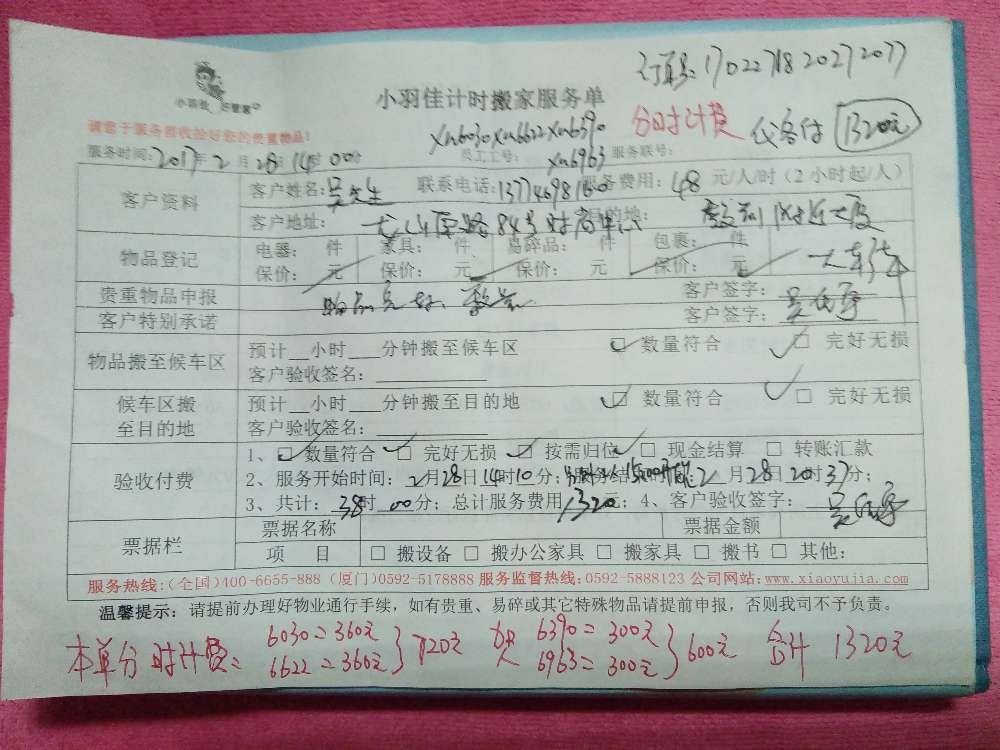 17022718 2027 2077
小羽佳计时搬家服务单
小羽佳 好管家
分时计费 代客付 1320元
xm6030 xm6622 xm6390
请您于服务前收捡好您的贵重物品!
员工工号: xm6963 服务联号:
服务时间: 2017年2月28日14时00分
客户资料
客户姓名: 吴先生 联系电话: 服务费用: 48 元/人/时(2小时起/人)
客户地址: 84号 目的地:
物品登记
电器: 件 家具: 件 易碎品: 件 包裹: 件
保价: 元 保价: 元 保价: 元 保价: 元
贵重物品申报 物品完好 客户签字:
客户特别承诺 客户签字:
物品搬至候车区
预计__小时___分钟搬至候车区 ☑ 数量符合 ☑ 完好无损
客户验收签名:
候车区搬至目的地
预计__小时___分钟搬至目的地 ☑ 数量符合 ☑ 完好无损
客户验收签名:
验收付费
1、☑ 数量符合 ☑ 完好无损 ☑ 按需归位 ☐ 现金结算 ☐ 转账汇款
2、服务开始时间: 2月28日14时10分; 2月28日20时37分;
3、共计: 38时00分; 总计服务费用 1320元; 4、客户验收签字:
票据栏
票据名称 票据金额
项 目 ☐ 搬设备 ☐ 搬办公家具 ☐ 搬家具 ☐ 搬书 ☐ 其他:
服务热线:(全国)400-6655-888 (厦门)0592-5178888 服务监督热线:0592-5888123 公司网站:www.xiaoyujia.com
温馨提示: 请提前办理好物业通行手续, 如有贵重、易碎或其它特殊物品请提前申报, 否则我司不予负责。
本单分时计费: 6030=360元 6622=360元 } 720元 6390=300元 6963=300元 } 600元 合计 1320元